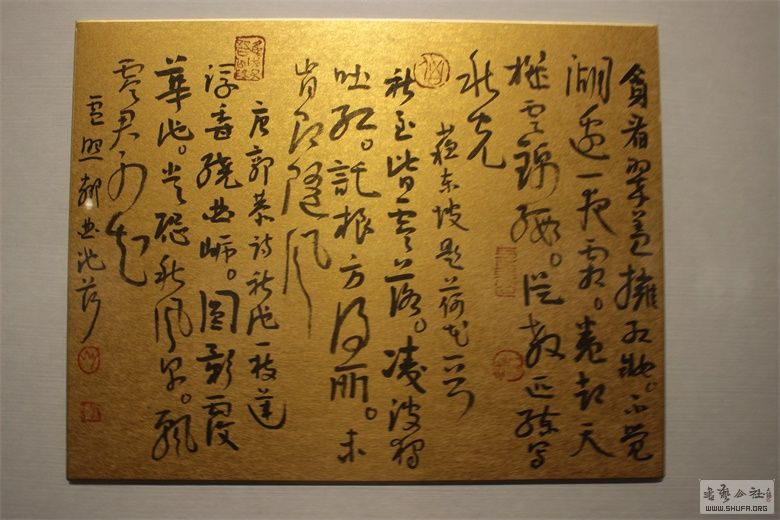 貪看翠蓋擁紅妝。不覺
湖邊一夜霜。卷卻天
機雲錦緞。從教匹練寫
秋光
蘇東坡題荷花一首
秋至皆零落。凌波獨
吐紅。託根方得所。未
肯即隨風
唐郭恭詩秋池一枝蓮
浮香繞曲岸。圓影覆
華池。常恐秋風早。飄
零君不知
盧照鄰曲池荷
書藝公社
WWW.SHUFA.ORG